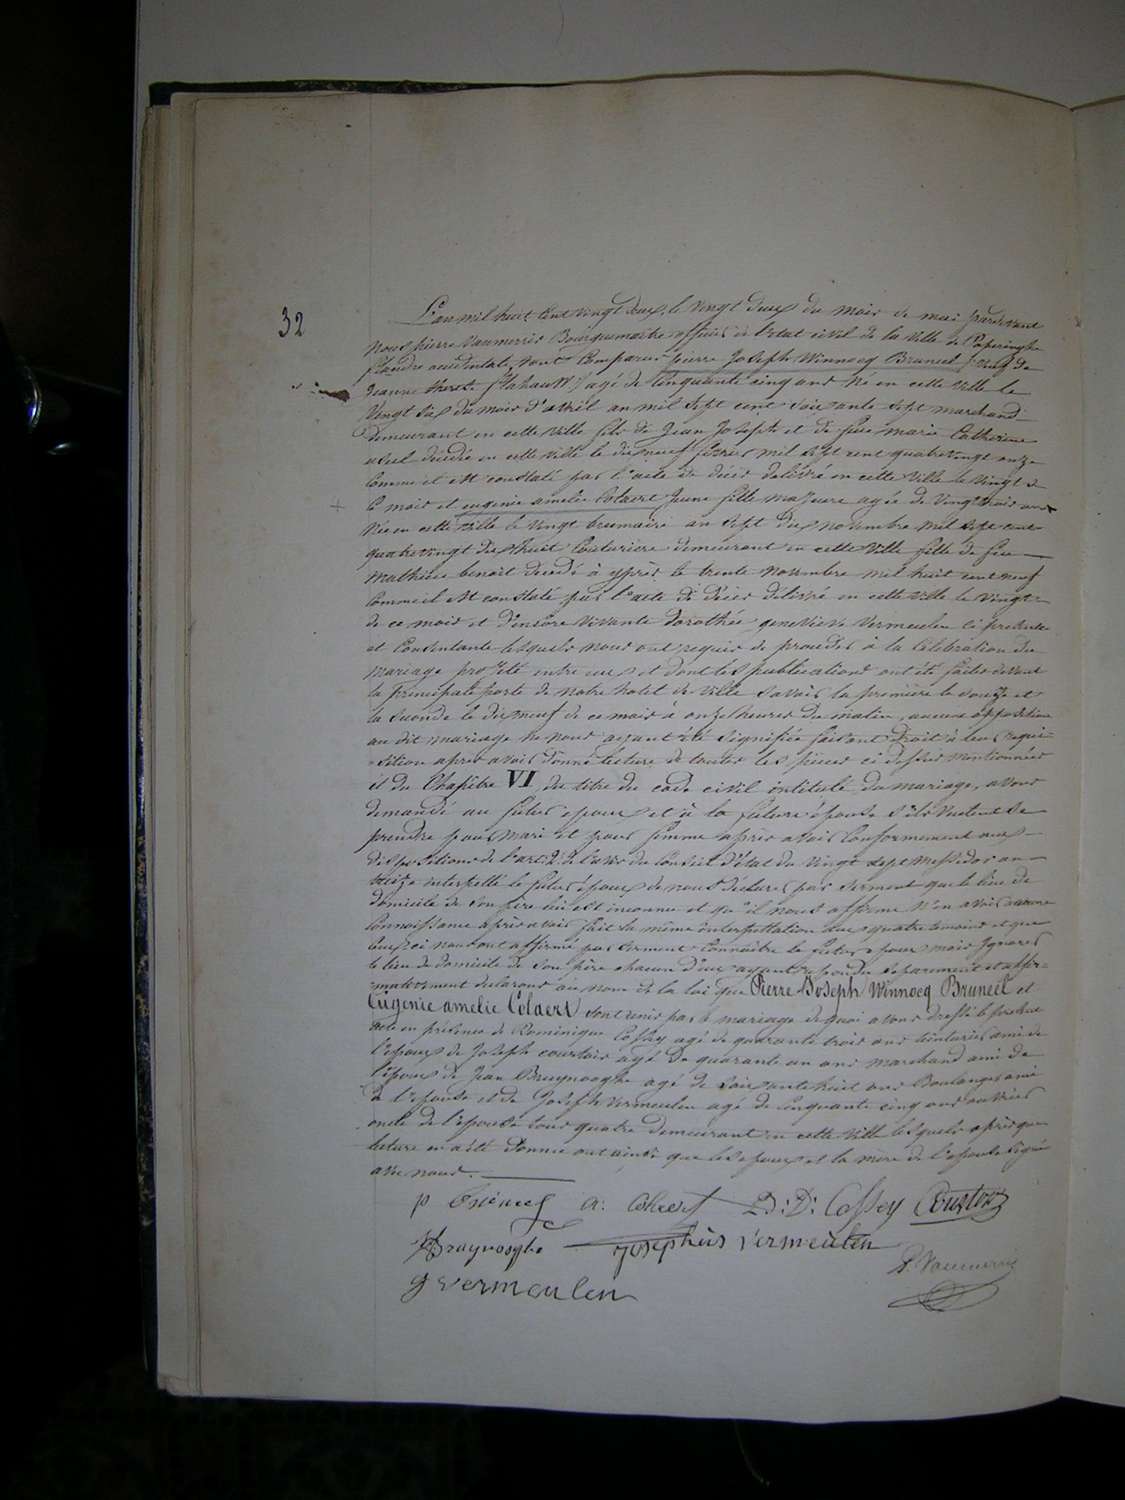 32
L'an mil huit cent vingt deux, le vingt deux du mois de mai pardevant
nous pierre Vanmerris Bourguemaitre officier de l'etat civil de la ville de Poperinghe
flandre occidentale, sont comparus pierre Joseph Winnocq Bruneel veuf de
Jeanne therese agé de cinquante cinq ans né en cette ville le
Vingt six du mois d'avril an mil sept cent soixante sept marchand
demeurant en cette ville fils de Jean Joseph et de feue marie Catherine
decedée en cette ville le dix neuf fevrier mil sept cent quatrevingt onze
comme il est constaté par l'acte de décès délivré en cette ville le vingt de
ce mois et eugenie amelie Colaert jeune fille majeure agée de vingt trois ans
née en cette ville le vingt brumaire an sept dix novembre mil sept cent
quatrevingt dix huit Couturiere demeurant en cette ville fille de feu
Mathieu benoit decedé à ypres le trente novembre mil huit cent neuf
comme il est constaté par l'acte de décès délivré en cette ville le vingt
de ce mois et d'encore vivante dorothée genevieve Vermeulen ci presente
et consentante lesquels nous ont requis de proceder à la celebration du
mariage projeté entre eux et dont les publications ont été faites devant
la principale porte de notre hotel de ville savoir la première le douze et
la seconde le dix neuf de ce mois à onze heures du matin, aucune opposition
au dit mariage ne nous ayant été signifiée faisant droit à leur requi-
-sition après avoir donné lecture de toutes les pièces ci dessus mentionnées
et du Chapitre VI du titre du code civil intitulé du mariage, avons
demandé au futur epoux et à la future épouse s'ils veulent se
prendre pour mari et pour femme après avoir conformement aux
dispositions de l'art: 2 de l'avis du Conseil d'état du vingt sept Messidor an
treize interpellé le futur époux de nous declarer par serment que le lieu de
domicile de son père lui est inconnu et qu'il nous affirme n'en avoir aucune
connoissance après avoir fait la même interpellation aux quatre temoins et que
ceux ci nous ont affirmé par serment connoitre le futur epoux mais ignorer
le lieu de domicile de son père chacun d'eux ayant repondu separement et affir-
mativement declarons au nom de la loi que Pierre Joseph Winnocq Bruneel et
Eugenie amelie Colaert sont unis par le mariage de quoi avons dressé le present
acte en présence de Dominique Cossey agé de quarante trois ans teinturier ami de
l'epoux de Joseph courtois agé de quarante un ans marchand ami de
l'époux de Jean Bruynooghe agé de soixante huit ans Boulanger ami
à l'epouse et de Joseph Vermeulen agé de cinquante cinq ans ouvrier
oncle de l'epouse tous quatre demeurant en cette ville lesquels après que
lecture en a été donnée ont ainsi que les epoux et la mère de l'epouse signé
avec nous.
P Bruneel A: Colaert D: D: Cossey Courtois
Bruynooghe Josephus Vermeulen
P. Vanmerris
g vermeulen